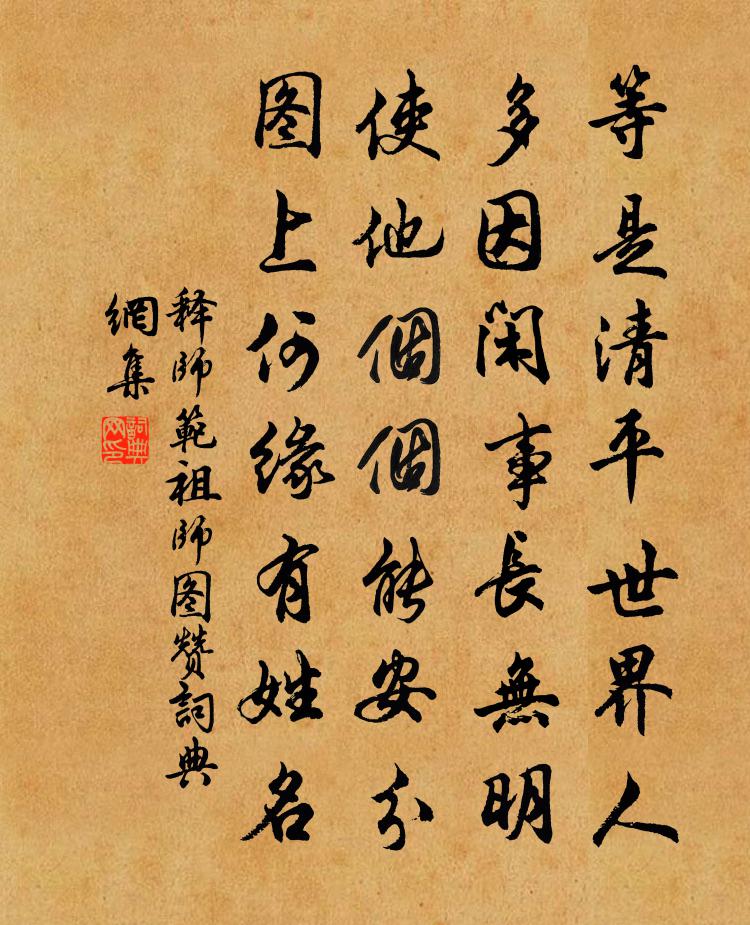 等是清平世界人
多因閑事長無明
使他個個能安分
图上何緣有姓名
释師範祖師图赞詞典
網集
詞典
网印